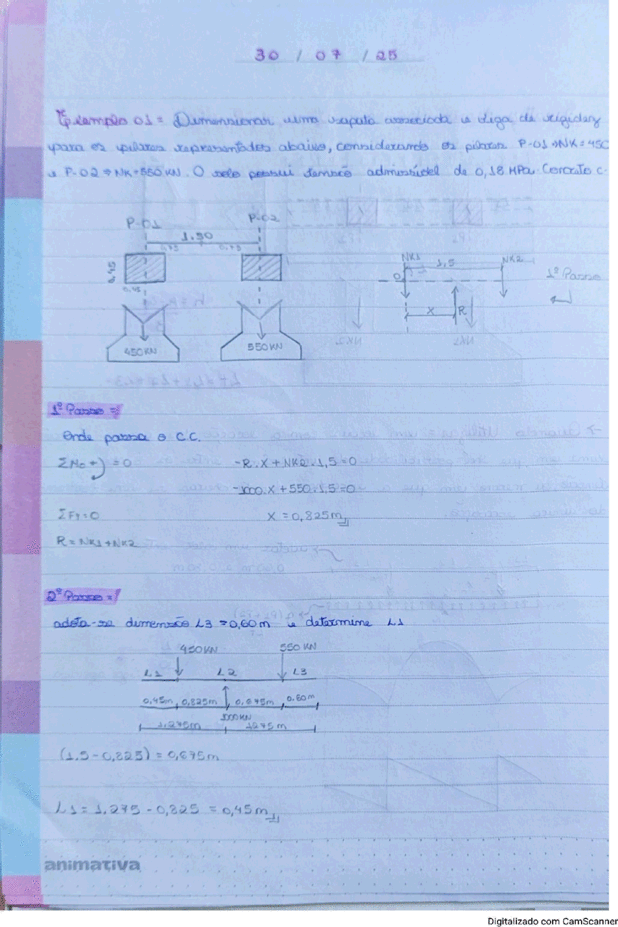 30 / 07 / 25
Exemplo 01 = Dimensionar uma sapata associada e viga de rigidez
para os pilares representados abaixo, considerando os pilares P-01 → NK = 450
e P-02 → NK = 550 KN. O solo possui tensão admissível de 0,18 MPa. Concreto C-
P-01
P-02
1.50
0,75
0,75
0,45
0,45
450 KN
550 KN
NK1
NK2
1,5
O
X
R
1º Passo
1º Passo =
Onde passa o C.C.
ΣMo +) = 0
-R.X + NK2.1,5 = 0
-1000.X + 550.1,5 = 0
ΣFy = 0
X = 0,825 m
R = NK1 + NK2
2º Passo =
adota-se dimensão L3 = 0,60 m e determine L1
450 KN
550 KN
L1
L2
L3
0,45m
0,825m
0,675m
0.60m
1000 KN
1.275m
1275m
(1.5 - 0,825) = 0,675m
L1 = 1,275 - 0,825 = 0,45 m
animativa
Digitalizado com CamScanner